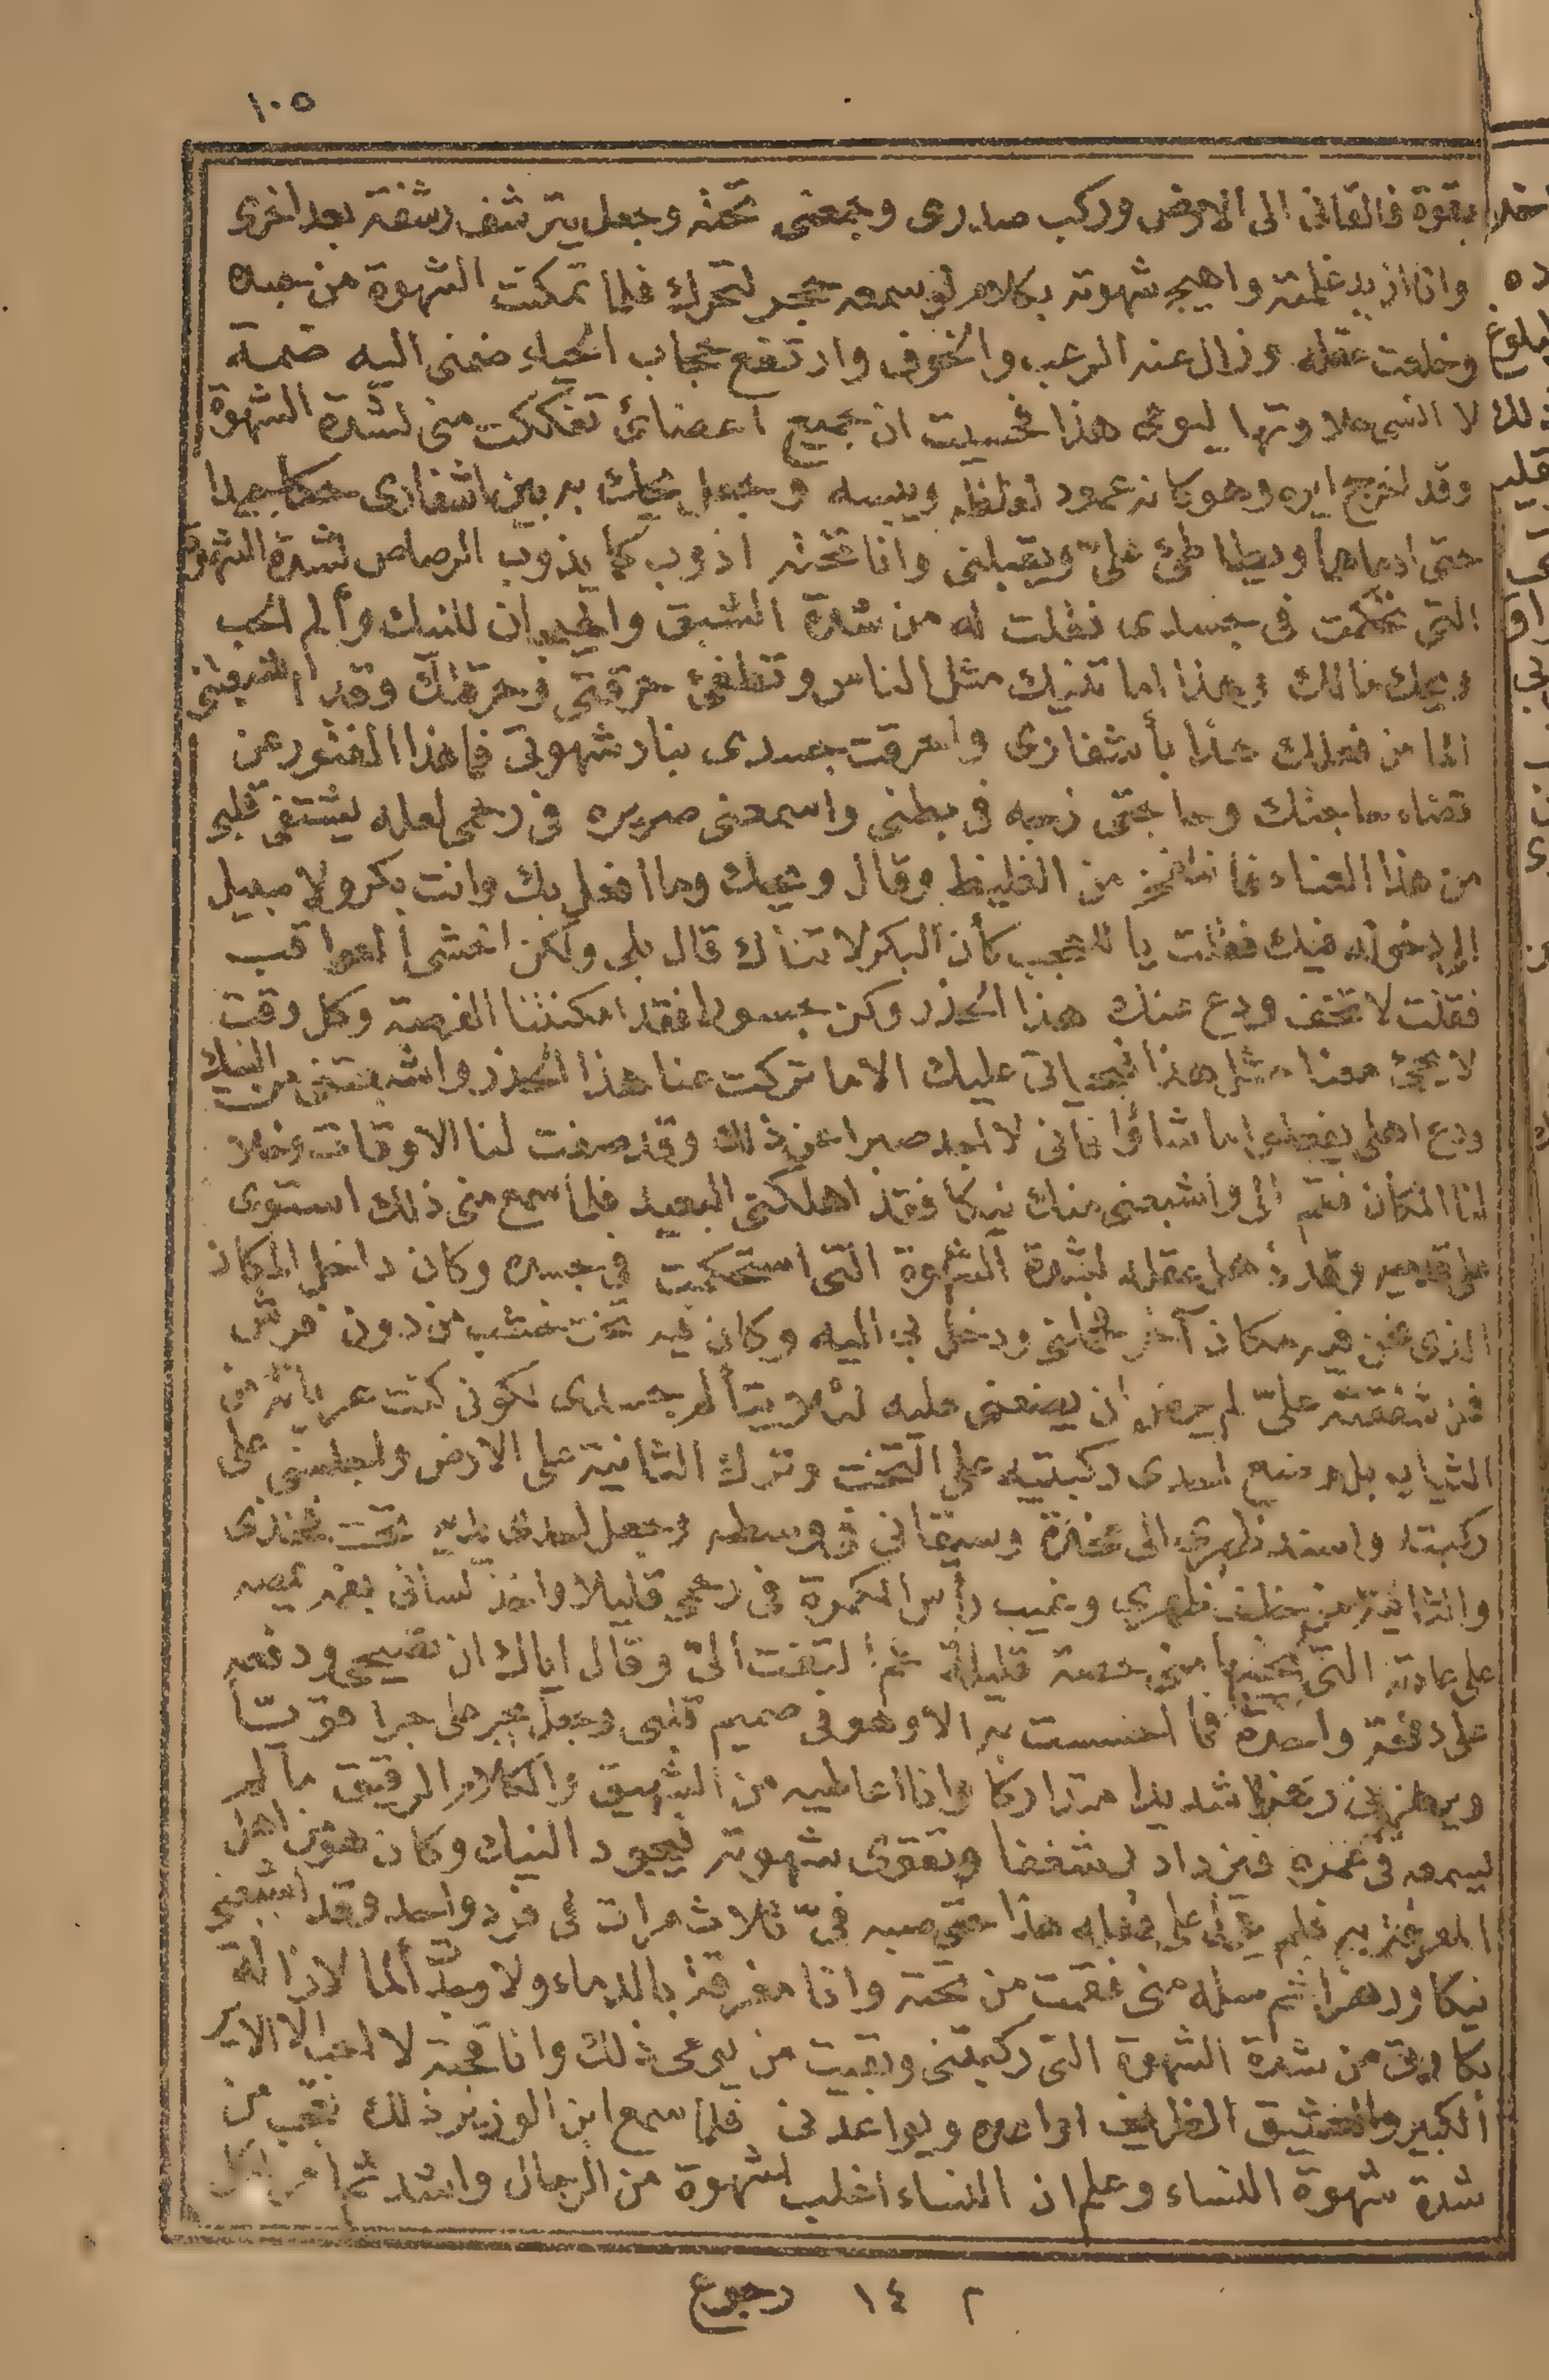 ١٠٥
بقوة فالقانى الى الارض وركب صدرى وجمعنى تحته وجعل يترشف رشفة بعد اخرى
وانا ازيد غلمته واهيج شهوته بكلام لو سمعه حجر لتحرك فلما تمكنت الشهوة من
وخلعت عقله وزال عنه الرعب والخوف وارتفع حجاب الحياء ضمنى اليه ضمة
لا انسى حلاوتها ليومى هذا فحسبت ان جميع اعضائى تفككت منى لشدة الشهوة
وقد اخرج ايره وهو كانه عمود لغلظه ويبسه وجعل يحك به بين اشفارى حكا جيدا
حتى ادماهما ويطاطئ علىّ ويقبلنى وانا تحته اذوب كما يذوب الرصاص لشدة الشهوة
التى تحكمت فى جسدى فقلت له من شدة الشبق والهيجان للنيك وألم الحب
ويحك مالك وهذا اما تنيك مثل الناس وتطفئ حرقتى وحرقتك وقد اشبعتنى
الما من فعلك هذا بأشفارى واحرقت جسدى بنار شهوتى فما هذا الفتور عن
قضاء حاجتك وحاجتى زجه فى بطنى واسمعنى صريره فى رحمى لعله يشتفى قلبى
من هذا العناء من الغليظ وقال ويحك وما افعل بك وانت بكر ولا سبيل
الى دخوله فيك فقلت يا للعجب كأن البكر لا تناك قال بلى ولكن اخشى العواقب
فقلت لا تخف ودع عنك هذا الحذر وكن جسورا فقد امكنتنا الفرصة وكل وقت
لا يجئ معنا مثل هذا فبحياتى عليك الا ما تركت عنا هذا الحذر واشبعتنى من النيك
ودع اهلى يفعلوا ما شاؤا فانى لا اجد صبرا عن ذلك وقد صفت لنا الاوقات وخلا
لنا المكان فقم الى واشبعنى منك نيكا فقد اهلكنى البعيد فلما سمع منى ذلك استوى
على قدميه وقد ذهل عقله لشدة الشهوة التى استحكمت فى جسده وكان داخل المكان
الذى نحن فيه مكان آخر فحملنى ودخل بى اليه وكان فيه تخت خشب من دون فرش
فمن شفقته علىّ لم يرض ان يضعنى عليه لئلا يتألم جسدى لكونى كنت عريانة من
الثياب بل وضع احدى ركبتيه على التخت وترك الثانية على الارض واجلسنى على
ركبته واسند ظهرى الى مخدة وسيقانى فى وسطه وجعل احدى يديه تحت فخذى
والثانية من خلف ظهرى وغيب رأس الكمرة فى رحمى قليلا واخذ لسانى بفمه يمصه
على عادته التى منى حصة قليلة ثم التفت الىّ وقال اياك ان تصيحى ودفعه
على دفعة واحدة فما احسست به الا وهو فى صميم قلبى وجعل يجر على جرا قويّا
ويرهزنى رهزا شديدا متداركا وانا اعاطيه من الشهيق والكلام الرقيق ما لم
يسمعه فى عمره فيزداد شغفا وتقوى شهوته فيجود النيك وكان هو من اهل
المعرفة به فلم يزل على فعله هذا حتى صبه فىّ ثلاث مرات فى فرد واحد وقد اشبعنى
نيكا ورهزا ثم سله منى فقمت من تحته وانا مغرقة بالدماء ولا وجدت ألما لازالة
بكارتى من شدة الشهوة التى ركبتنى وبقيت من يومى ذلك وانا قحبة لا احب الا الاير
الكبير والعشيق الظريف اواعده ويواعدنى فلما سمع ابن الوزير ذلك تعجب من
شدة شهوة النساء وعلم ان النساء اغلب شهوة من الرجال واشد ثم امر
٢ ١٤ رجوع